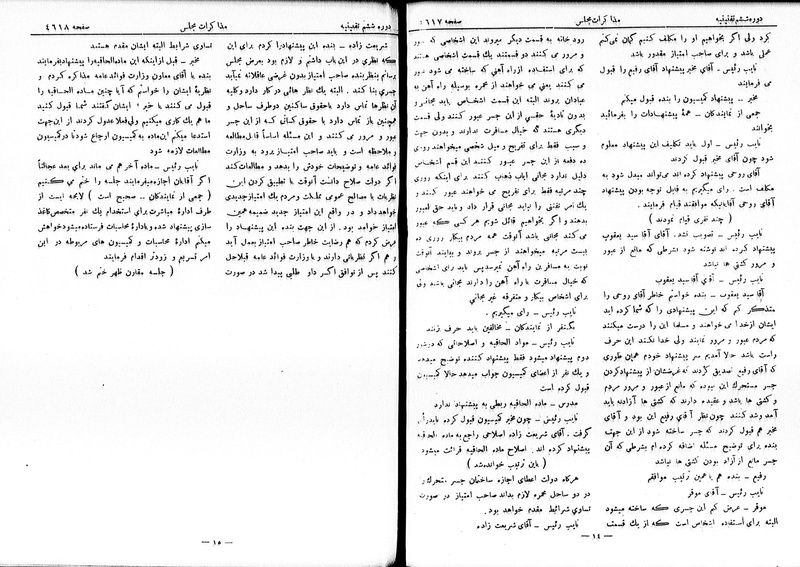 دوره ششم تقنینیه
مذاکرات مجلس
صفحه ۴۶۱۷
کرد ولی اگر بخواهیم او را مکلف کنیم گمان نمی‌کنم
عملی باشد و برای صاحب امتیاز مقدور باشد
نایب رئیس ـ آقای مخبر پیشنهاد آقای رفیع را قبول
می فرمایند
مخبر ـ پیشنهاد کمیسیون را بنده قبول میکنم
جمعی از نمایندگان ـ همهٔ پیشنهادات را بفرمائید
بخوانند
نایب رئیس ـ اول باید تکلیف این پیشنهاد معلوم
شود چون آقای مخبر قبول کردند
آقای روحی پیشنهاد کرده اند می‌تواند مبدل شود به
مکلف است . رای میگیریم به قابل توجه بودن پیشنهاد
آقای روحی آقایانیکه موافقند قیام فرمایند .
( چند نفری قیام نمودند )
نایب رئیس ـ تصویب نشد. آقای آقا سید یعقوب
پیشنهاد کرده اند نوشته شود بشرطی که مانع از عبور
و مرور کشتی ها نباشد
نایب رئیس ـ آقای آقاسید یعقوب
آقا سید یعقوب ـ بنده خواستم خاطر آقای روحی را
متذکر کنم که این پیشنهادی را که شما کرده اید
ایشان از خدا می خواهند و مسلما این را درست میکنند
که مردم عبور و مرور نمایند ولی خدا نکند این حرف
واست باشد حالا آمدیم سر پیشنهاد خودم همان طوری
که آقای رفیع تصدیق کردند که غرضشان از پیشنهادکردن
جسر متحرک این نبوده که مانع از عبور و مرور مردم
و کشتی ها باشد و عقیده دارند که کشتی ها آزادانه باید
آمد وشد کنند چون نظر آقای رفیع این بود و آقای
مخبر هم قبول کردند که جسر ساخته شود از این جهت
بنده برای توضیح مسئله اضافه کرده ام بشرطی که آن
جسر مانع از آزاد بودن کشتی ها نباشد
رفیع ـ بنده هم با همین ترتیب موافقم
نایب رئیس ـ آقای موقر
موقر ـ عرض کنم این جسری که ساخته میشود
البته برای استفاده اشخاص است که از یک قسمت
رود خانه به قسمت دیگر میروند این اشخاصی که عبور
و مرور می کنند دو قسمتند یک قسمت اشخاصی
که برای استفاده از راه آهنی که ساخته می شود عبور
می کنند یعنی می خواهند از محمره بوسیله راه آهن به
عبادان بروند البته این قسمت اشخاص باید مجانی و
بدون تادیهٔ حقی از این جسر عبور کنند ولی قسمت
دیگری هستند که خیال مسافرت ندارند و بدون جهت
و سبب فقط برای تفریح و میل شخصی میخواهند روزی
ده دفعه از این جسر عبور کنند این قسم اشخاص
دلیل ندارد مجانی ایاب ذهاب کنند برای اینکه روزی
چند مرتبه فقط برای تفریح می خواهند عبور کنند و
یک امر تفننی را نباید مجانی قرار داد و باید حق العبور
بدهند و اگر بخواهیم قائل شویم هر کسی که عبور
می کند مجانی باشد آنوقت همه مردم بیکار روزی ده
بیست مرتبه میخواهند از جسر بروند و بیایند آنوقت
نوبت به مسافرین راه آهن نمیرسد پس باید برای اشخاصی
که خیال مسافرت با راه آهن را دارند مجانی باشد ولی
برای اشخاص بیکار و متفرقه غیر مجانی
نایب رئیس ـ رای میگیریم .
یکنفر از نمایندگان ـ مخالفین باید حرف بزنند
نایب رئیس ـ مواد الحاقیه و اصلاحاتی که درشور
دوم پیشنهاد میشود فقط پیشنهاد کننده توضیح میدهد
و یک نفر از اعضای کمیسیون جواب میدهد حالا کمیسیون
قبول کرده است
مدرس ـ ماده الحاقیه ربطی به پیشنهاد ندارد
نایب رئیس ـ چون مخبر کمیسیون قبول کرده باید رأی
گرفت . آقای شریعت زاده اصلاحی راجع به ماده الحاقیه
پیشنهاد کرده اند. اصلاح ماده الحاقیه قرائت میشود
( باین ترتیب خوانده شد )
هر گاه دولت اعطای اجازه ساختمان جسر متحرک را
در دو ساحل محمره لازم بداند صاحب امتیاز در صورت
تساوی شرائط مقدم خواهد بود .
نایب رئیس ـ آقای شریعت زاده
ـ ۱۴ ـ
دوره ششم تقنینیه
مذاکرات مجلس
صفحه ۴۶۱۸
شریعت زاده ـ بنده این پیشنهاد را کردم برای این
که نظری در این باب داشتم و لازم بود بعرض مجلس
برسانم بنظر بنده صاحب امتیاز بدون غرضی عاقلانه نمیآید
جسری بنا کند . البته یک نظر هائی در کار دارد و کلیه
آن نظر ها تماس دارد با حقوق ساکنین دو طرف ساحل و
همچنین باز تماس دارد با حقوق کسانی که از این جسر
عبور و مرور می کنند و این مسئله اساساً قابل مطالعه
و ملاحظه است و باید صاحب امتیاز برود به وزارت
فوائد عامه و توضیحات خودش را بدهد و مطالعات کنند
اگر دولت صلاح دانست آنوقت با تطبیق کردن این
نظریات با مصالح عمومی مملکت و مردم یک امتیاز جدیدی
خواهد داد و در واقع این امتیاز جدید ضمیمه همین
امتیاز خواهد بود . از این جهت بنده این پیشنهاد را
عرض کردم که هم رضایت خاطر صاحب امتیاز بعمل آید
و هم اگر نظریاتی دارند و با وزارت فوائد عامه قبلا حل
کنند پس از توافق اگر داو طلبی پیدا شد در صورت
تساوی شرایط البته ایشان مقدم هستند
مخبر ـ قبل از اینکه این ماده الحاقیه را پیشنهاد بفرمایند
بنده با آقای معاون وزارت فوائد عامه مذاکره کردم و
نظریهٔ ایشان را خواستم که آیا چنین ماده الحاقیه را
قبول می کنند یا خیر ؛ ایشان گفتند شما قبول کنید
ما هم یک کاری میکنیم ولی فعلا عدول کردند از این جهت
استدعا میکنم این ماده به کمیسیون ارجاع شود تا در کمیسیون
مطالعات لازمه شود
نایب رئیس ـ ماده آخر هم می ماند برای بعد عجالتاً
اگر آقایان اجازه میفرمایند جلسه را ختم می کنیم
( جمعی از نمایندگان .. صحیح است ) لایحه ایست از
طرف ادارهٔ مباشرت برای استخدام یک نفر متخصص کاغذ
سازی پیشنهاد شده و بادارهٔ محاسبات فرستاده میشود خواهش
میکنم ادارهٔ محاسبات و کمیسیون های مربوطه در این
امر تسریع و زودتر اقدام فرمایند
( جلسه مقارن ظهر ختم شد )
ـ ۱۵ ـ